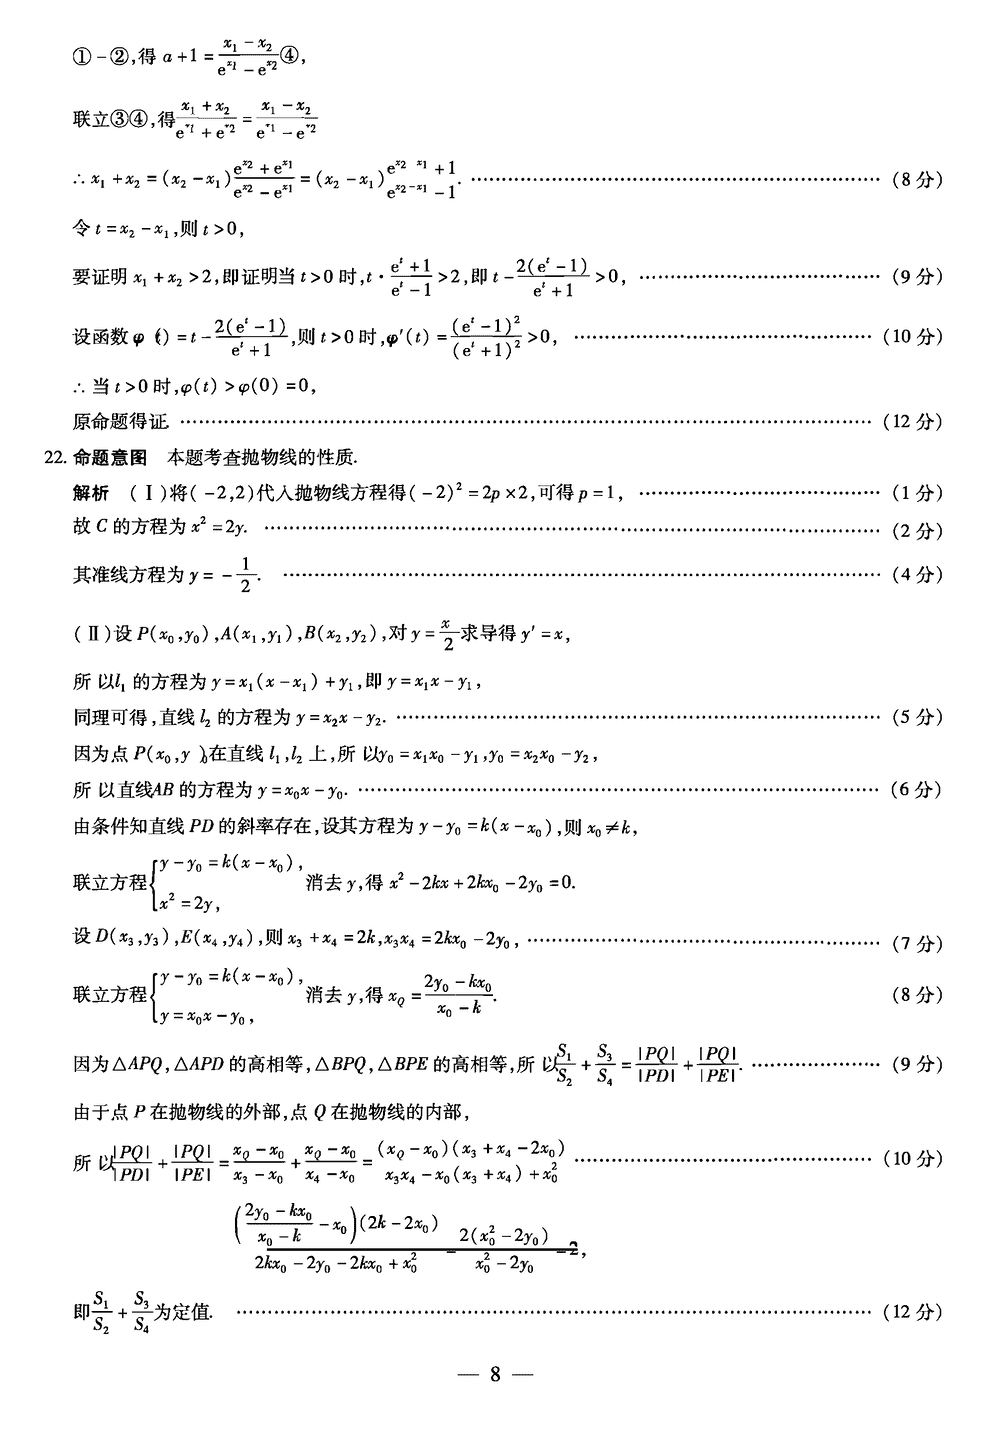 ①-②,得 a+1=\frac{x_1-x_2}{e^{x_1}-e^{x_2}}④,
联立③④,得\frac{x_1+x_2}{e^{x_1}+e^{x_2}}=\frac{x_1-x_2}{e^{x_1}-e^{x_2}}
∴ x_1+x_2=(x_2-x_1)\frac{e^{x_2}+e^{x_1}}{e^{x_2}-e^{x_1}}=(x_2-x_1)\frac{e^{x_2 x_1}+1}{e^{x_2-x_1}-1}. …… (8分)
令 t=x_2-x_1,则 t>0,
要证明 x_1+x_2>2,即证明当 t>0 时,t·\frac{e^t+1}{e^t-1}>2,即 t-\frac{2(e^t-1)}{e^t+1}>0, …… (9分)
设函数φ(t)=t-\frac{2(e^t-1)}{e^t+1},则 t>0 时,φ'(t)=\frac{(e^t-1)^2}{(e^t+1)^2}>0, …… (10分)
∴ 当 t>0 时,φ(t)>φ(0)=0,
原命题得证. …… (12分)
22. 命题意图 本题考查抛物线的性质.
解析 (Ⅰ)将(-2,2)代入抛物线方程得(-2)^2=2p×2,可得 p=1, …… (1分)
故 C 的方程为 x^2=2y. …… (2分)
其准线方程为 y=-\frac{1}{2}. …… (4分)
(Ⅱ)设 P(x_0,y_0),A(x_1,y_1),B(x_2,y_2),对 y=\frac{x}{2}求导得 y'=x,
所以l_1 的方程为 y=x_1(x-x_1)+y_1,即 y=x_1x-y_1,
同理可得,直线 l_2 的方程为 y=x_2x-y_2. …… (5分)
因为点 P(x_0,y_0)在直线 l_1,l_2 上,所以y_0=x_1x_0-y_1,y_0=x_2x_0-y_2,
所以直线AB 的方程为 y=x_0x-y_0. …… (6分)
由条件知直线 PD 的斜率存在,设其方程为 y-y_0=k(x-x_0),则 x_0≠k,
联立方程{y-y_0=k(x-x_0), x^2=2y, 消去 y,得 x^2-2kx+2kx_0-2y_0=0.
设 D(x_3,y_3),E(x_4,y_4),则 x_3+x_4=2k,x_3x_4=2kx_0-2y_0, …… (7分)
联立方程{y-y_0=k(x-x_0), y=x_0x-y_0, 消去 y,得 x_Q=\frac{2y_0-kx_0}{x_0-k}. (8分)
因为△APQ,△APD 的高相等,△BPQ,△BPE 的高相等,所以\frac{S_1}{S_2}+\frac{S_3}{S_4}=\frac{|PQ|}{|PD|}+\frac{|PQ|}{|PE|}. …… (9分)
由于点 P 在抛物线的外部,点 Q 在抛物线的内部,
所以\frac{|PQ|}{|PD|}+\frac{|PQ|}{|PE|}=\frac{x_Q-x_0}{x_3-x_0}+\frac{x_Q-x_0}{x_4-x_0}=\frac{(x_Q-x_0)(x_3+x_4-2x_0)}{x_3x_4-x_0(x_3+x_4)+x_0^2} …… (10分)
\frac{(\frac{2y_0-kx_0}{x_0-k}-x_0)(2k-2x_0)}{2kx_0-2y_0-2kx_0+x_0^2}=\frac{2(x_0^2-2y_0)}{x_0^2-2y_0}=2,
即\frac{S_1}{S_2}+\frac{S_3}{S_4}为定值. …… (12分)
— 8 —